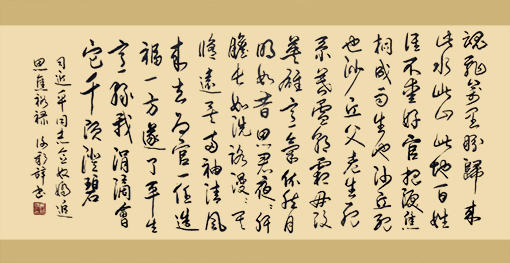 魂飛萬里盼歸來
此水此山此地百姓
谁不愛好官把泪焦
桐成雨生也沙丘死
也沙丘父老生死
系暮雪朝霜毋改
英雄意氣依然月
明如昔思君夜夜肝
膽长如洗路漫漫其
修遠矣两袖清風
来去为官一任造
福一方遂了平生
意綠我涓滴會
它千顷澄碧
习近平同志念奴娇追
思焦裕禄 書